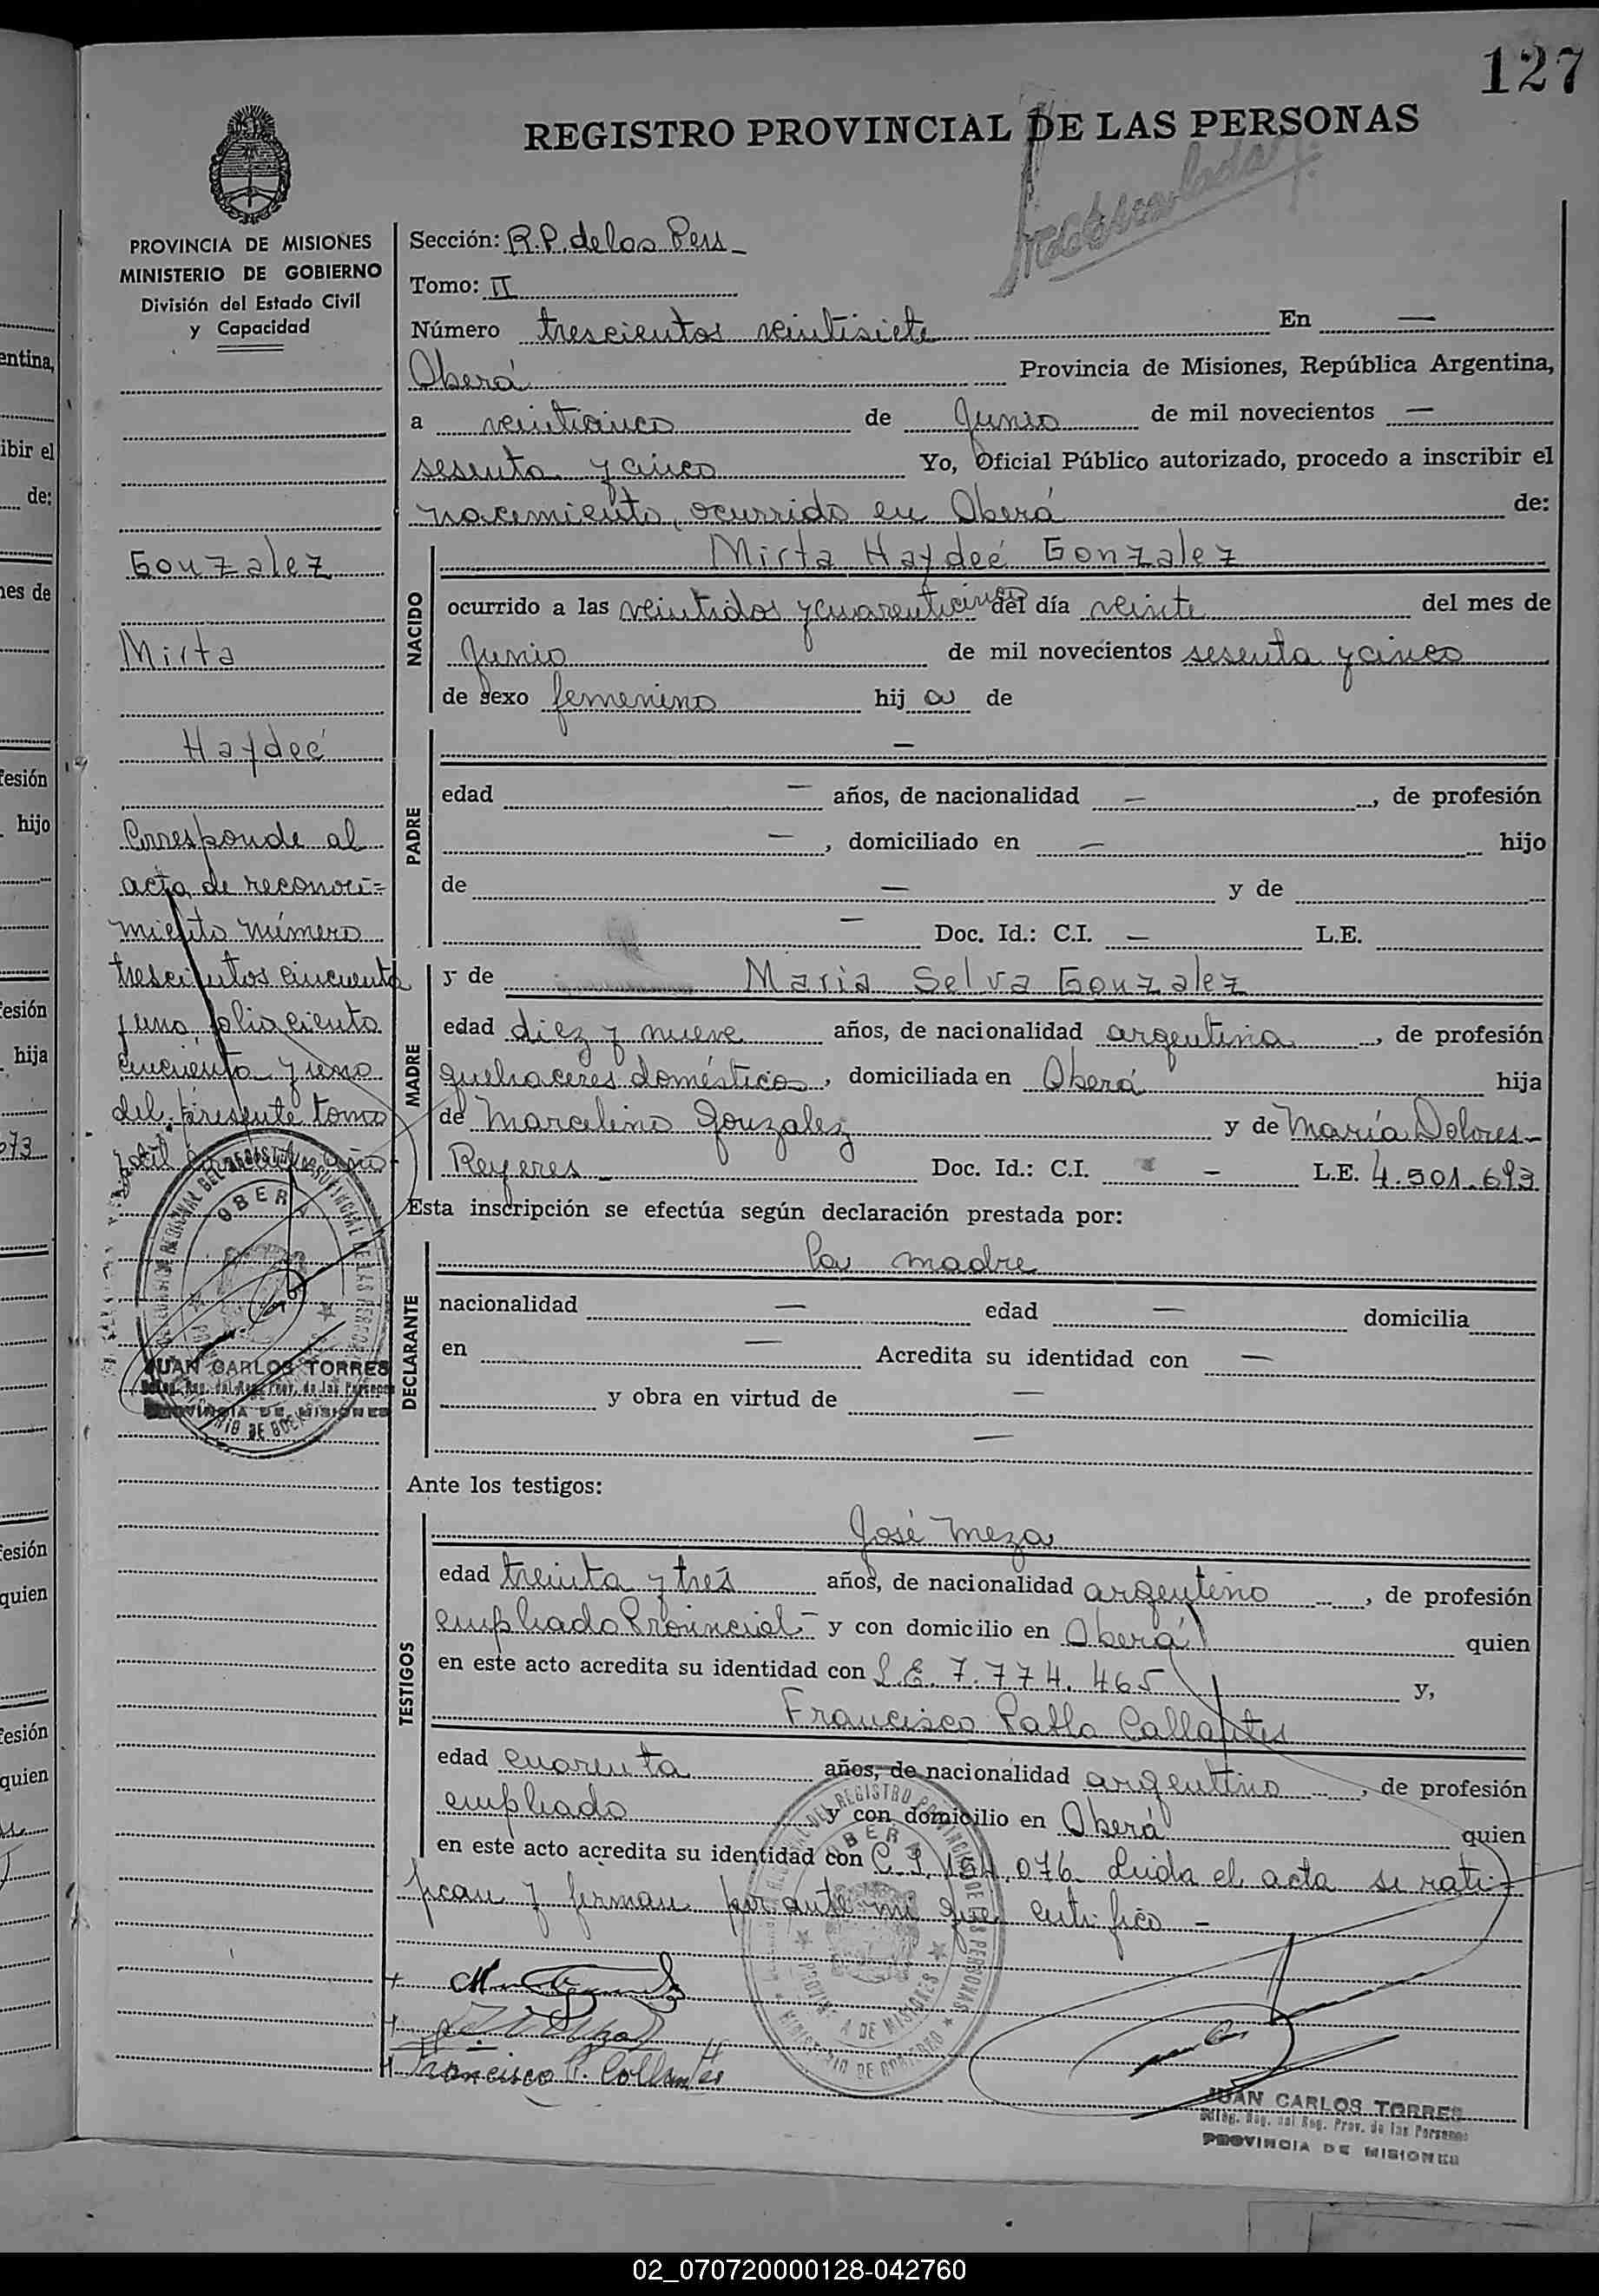 127
REGISTRO PROVINCIAL DE LAS PERSONAS
PROVINCIA DE MISIONES
MINISTERIO DE GOBIERNO
División del Estado Civil
y Capacidad
Gonzalez
Mirta
Haydeé
Corresponde al
acta de reconoci=
miento número
trescientos cincuenta
y uno folio ciento
cincuenta y uno
del presente tomo
año
OBERA
JUAN CARLOS TORRES
PROVINCIA DE MISIONES
Sección: R.P. de las Pers -
Tomo: II
Número trescientos veintisiete En —
Oberá Provincia de Misiones, República Argentina,
a veinticinco de Junio de mil novecientos —
sesenta y cinco Yo, Oficial Público autorizado, procedo a inscribir el
nacimiento, ocurrido en Oberá de:
NACIDO
Mirta Haydeé Gonzalez
ocurrido a las veintidos y cuarenticinco del día veinte del mes de
Junio de mil novecientos sesenta y cinco
de sexo femenino hij a de
PADRE
—
edad — años, de nacionalidad —, de profesión
—, domiciliado en — hijo
de — y de
— Doc. Id.: C.I. — L.E.
MADRE
y de Maria Selva Gonzalez
edad diez y nueve años, de nacionalidad argentina, de profesión
quehaceres domésticos, domiciliada en Oberá hija
de Marcelino Gonzalez y de María Dolores -
Reyeres - Doc. Id.: C.I. — L.E. 4.901.693
Esta inscripción se efectúa según declaración prestada por:
DECLARANTE
La madre
nacionalidad — edad — domicilia
en — Acredita su identidad con —
y obra en virtud de —
—
Ante los testigos:
TESTIGOS
José Meza
edad treinta y tres años, de nacionalidad argentino, de profesión
empleado Provincial - y con domicilio en Oberá quien
en este acto acredita su identidad con L.E. 7.774.465 y,
Francisco Pablo Collantes
edad cuarenta años, de nacionalidad argentino, de profesión
empleado y con domicilio en Oberá quien
en este acto acredita su identidad con C.I. 154.076 Leida el acta se rati-
fican y firman por ante mi que certifico -
Francisco P. Collantes
OBERA
JUAN CARLOS TORRES
Deleg. Reg. del Reg. Prov. de las Personas
PROVINCIA DE MISIONES
02_070720000128-042760